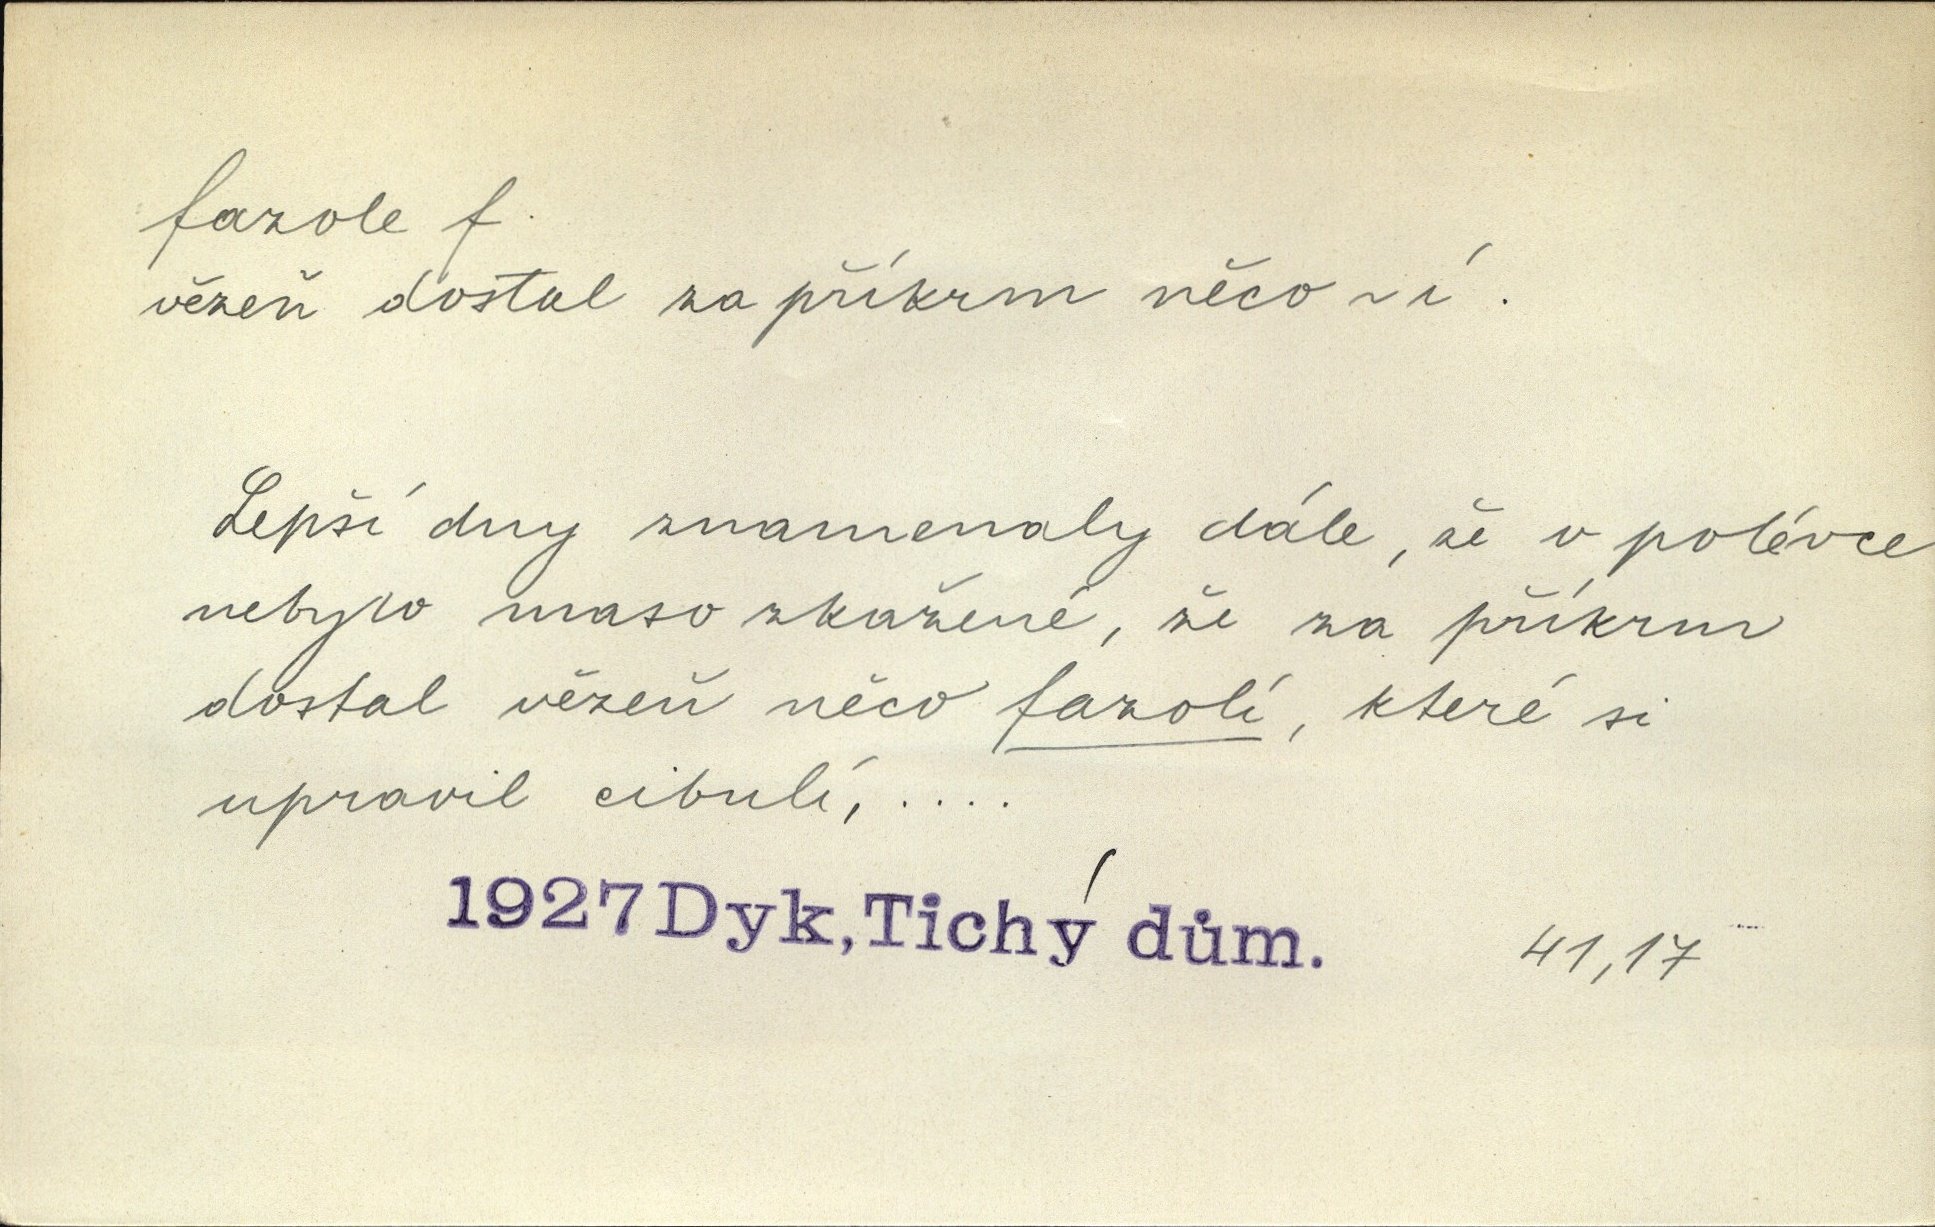 fazole f.
vězeň dostal za příkrm něco ~í.
Lepší dny znamenaly dále, že v polévce
nebylo maso zkažené, že za příkrm
dostal vězeň něco fazolí, které si
upravil cibulí, ....
1927 Dyk, Tichý dům.
41,17